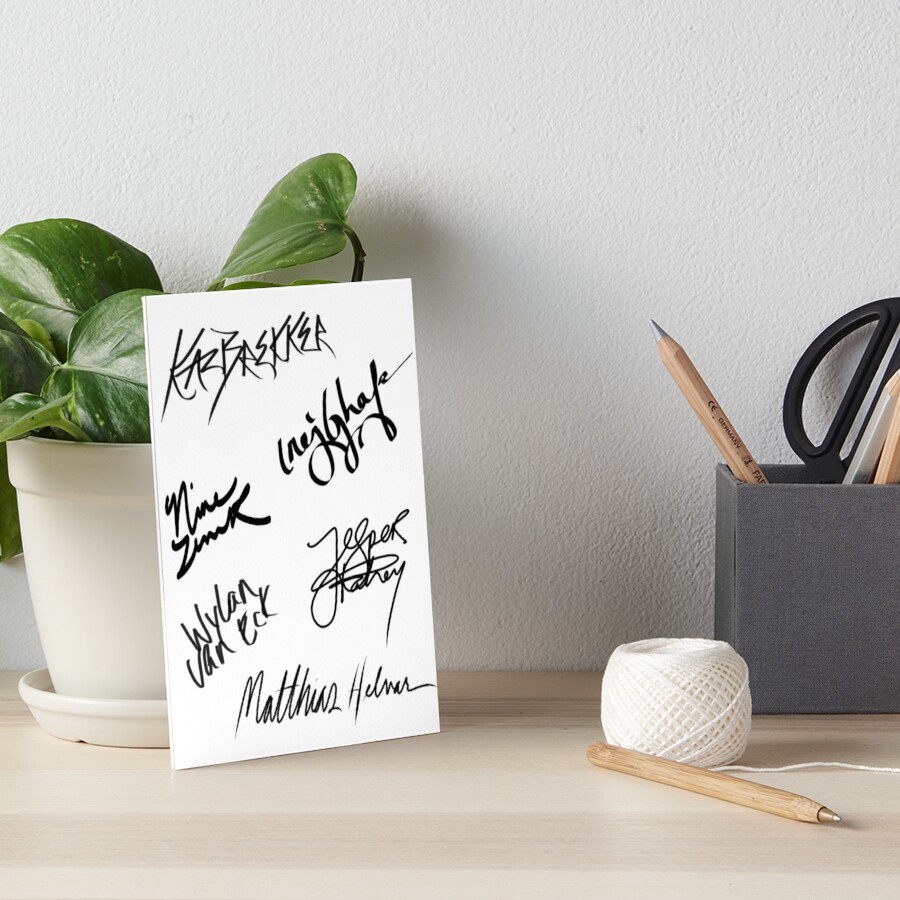 Kaz Brekker
Inej Ghafa
Nina
Zenik
Jesper
Fahey
Wylan
Van Eck
Matthias Helvar
GERMANY